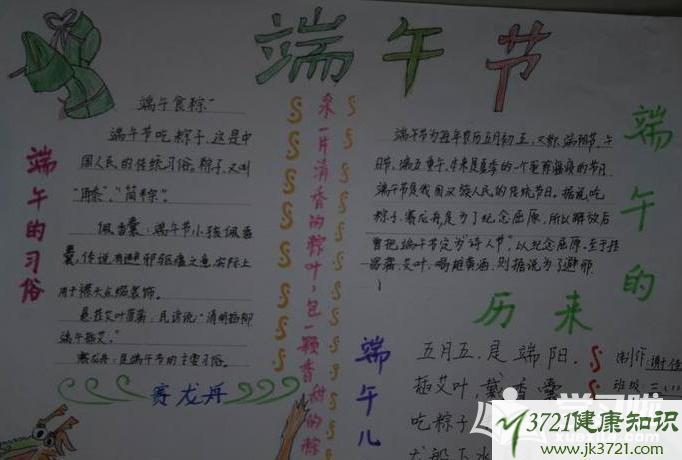 端午节
端午食粽
端午节吃粽子,这是中
国人民的传统习俗。粽子,又叫
"角黍"、"筒粽"。
佩香囊:端午节小孩佩香
囊,传说有避邪驱瘟之意,实际上
用于襟头点缀装饰。
悬艾叶菖蒲:民谚说:"清明插柳
端午插艾。"
赛龙舟:是端午节的主要习俗。
端午的习俗
赛龙舟
采一片清香的粽叶,包一颗香甜的粽
端午节为每年农历五月初五,又称端阳节,午
日节,端五,重午,
端午节是我国汉族人民的传统节日。据说吃
粽子,赛龙舟,是为了纪念屈原,所以解放后
曾把端午节定为"诗人节",以纪念屈原。至于挂
菖蒲、艾叶,喝雄黄酒,则据说为了避邪
端午的
历来
端午儿
五月五,是端阳。
插艾叶,戴香囊
吃粽子
龙船下水
制作:谢佳
班级:三
3721健康知识
www.jk3721.com